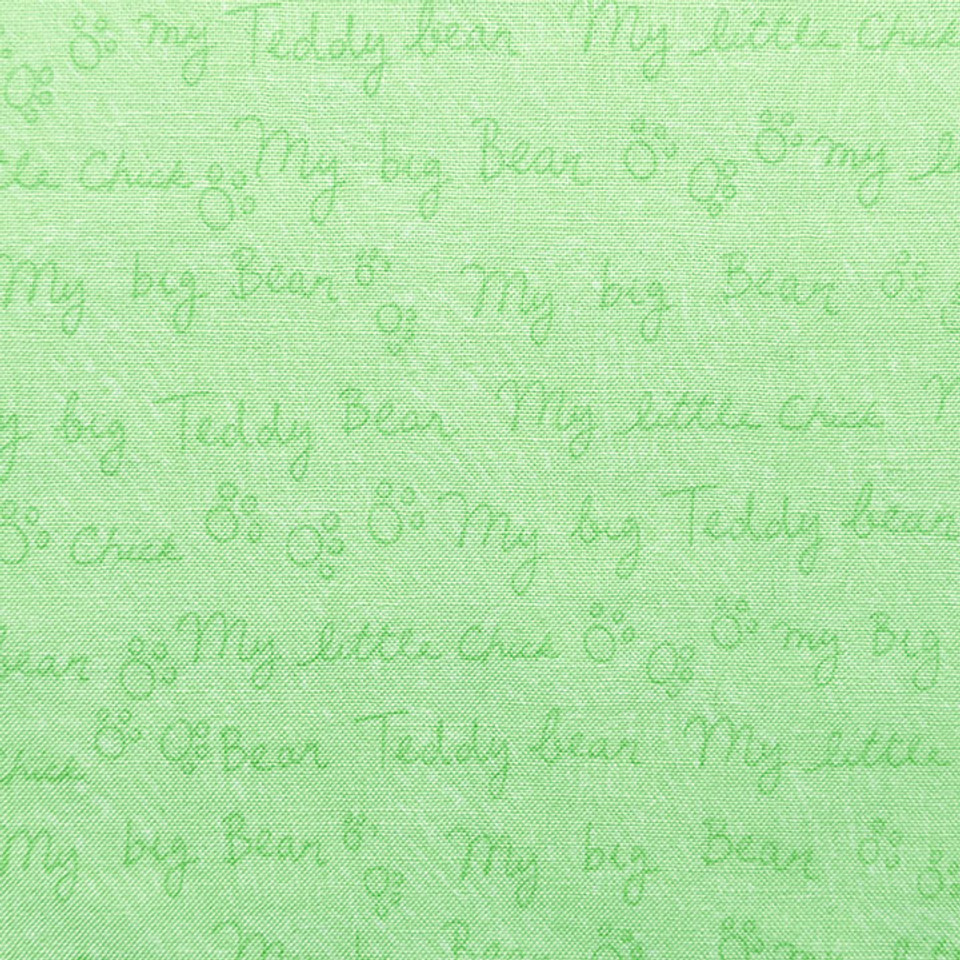 my Teddy bear My little Chick
Chick My big Bear my
My big Bear My big Bear
big Teddy Bear My little Chick
Chick My big Teddy bear
bear My little Chick my Big
Chick Bear Teddy bear My little
My big Bear My big Bear